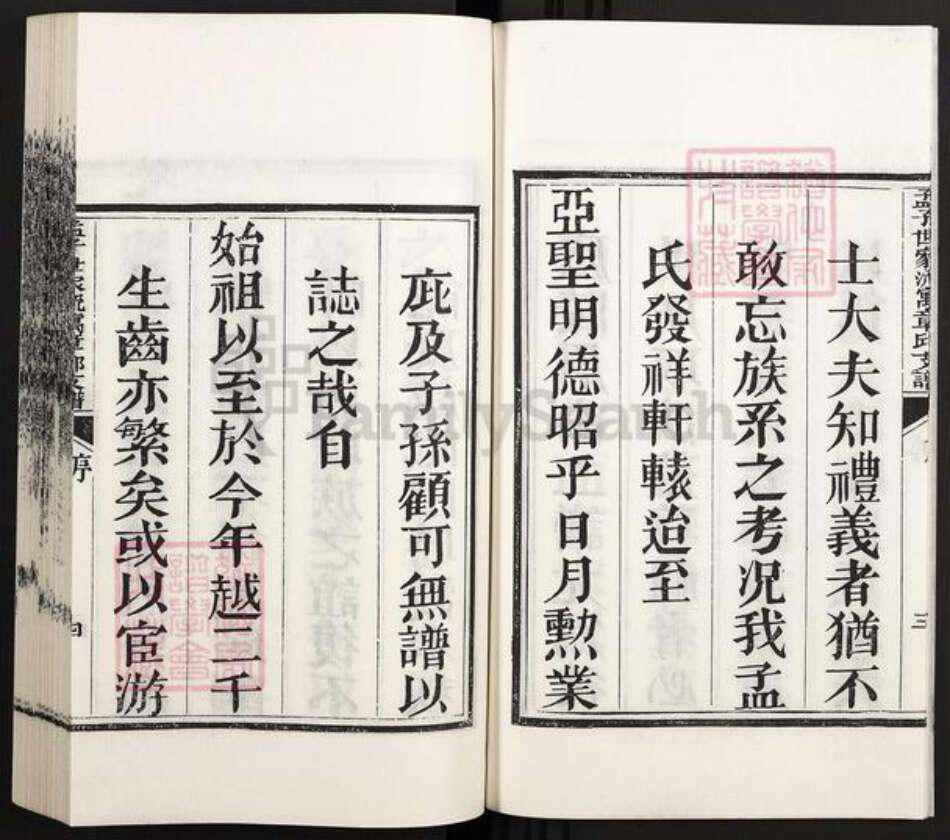 孟子世家流寓章邱支譜
三
士大夫知禮義者猶不
敢忘族系之考況我孟
氏發祥軒轅迨至
亞聖明德昭乎日月勲業
庇及子孫顧可無譜以
誌之哉自
始祖以至於今年越二千
生齒亦繁矣或以宦游
序
四
FamilySearch